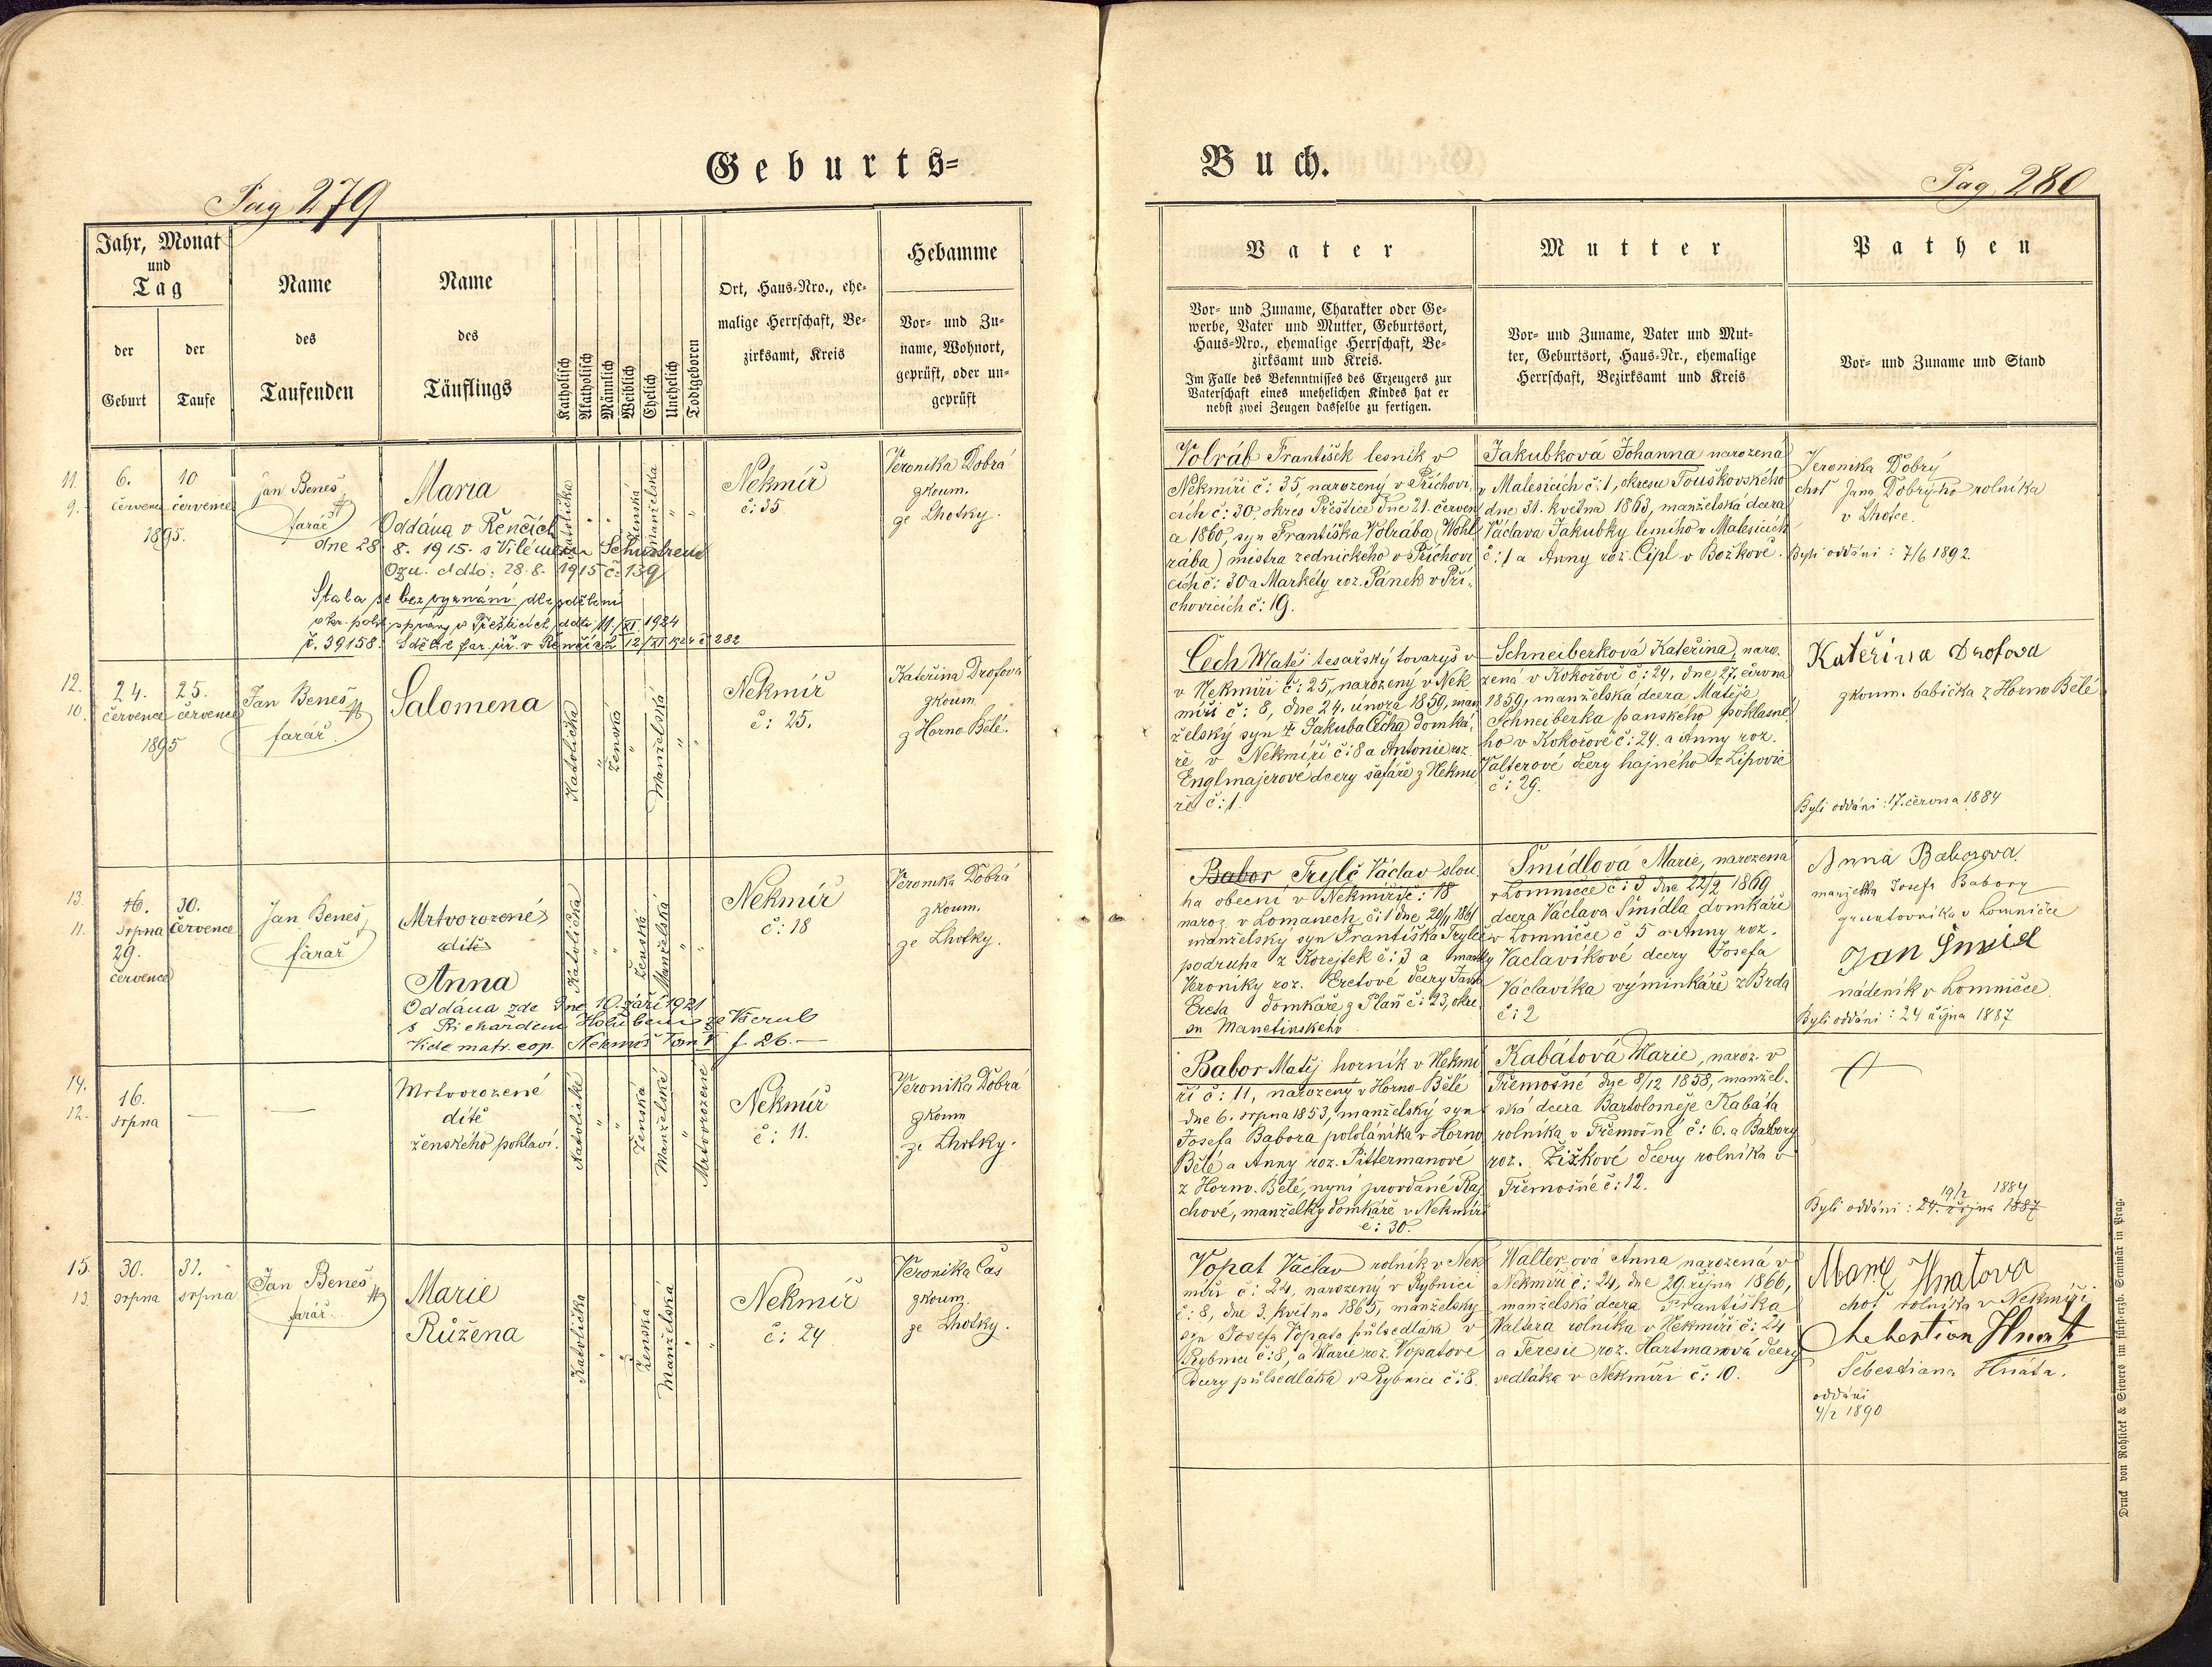 Geburts=
Buch.
Pag 279
Pag 280
Jahr, Monat
und
Tag
der
Geburt
der
Taufe
Name
des
Taufenden
Name
des
Täuflings
Katholisch
Akatholisch
Männlich
Weiblich
Ehelich
Unehelich
Todtgeboren
Ort, Haus-Nro., ehe-
malige Herrschaft, Be-
zirksamt, Kreis
Hebamme
Vor- und Zu-
name, Wohnort,
geprüft, oder un-
geprüft
Vater
Vor- und Zuname, Charakter oder Ge-
werbe, Vater und Mutter, Geburtsort,
Haus-Nro., ehemalige Herrschaft, Be-
zirksamt und Kreis.
Im Falle des Bekenntnisses des Erzeugers zur
Vaterschaft eines unehelichen Kindes hat er
nebst zwei Zeugen dasselbe zu fertigen.
Mutter
Vor- und Zuname, Vater und Mut-
ter, Geburtsort, Haus-Nr., ehemalige
Herrschaft, Bezirksamt und Kreis
Pathen
Vor- und Zuname und Stand
11.
9.
6.
července
10
července
1895.
Jan Beneš
farář
Maria
Oddána v Řenčích
dne 28. 8. 1915. s Vilémem Schustrem
Ozn. ddto: 28. 8. 1915 č. 139
Stala se bez vyznání dle sdělení
okr. polit. správy v Přešticích ddto 11./XI. 1924
č. 39158. Sdělil far. úř. v Řenčích 12/XI 1924 č 282
Katolička
Ženská
Manželská
Nekmíř
č: 35
Veronika Dobrá
zkoum.
ze Lhotky.
Volráb František lesník v
Nekmíři č: 35, narozený v Příchovi-
cích č: 30, okres Přeštice dne 21. červen
ce 1860, syn Františka Volrába (Wohl
rába) mistra zednického v Příchovi
cích č: 30 a Markéty roz. Pánek v Pří-
chovicích č: 19.
Jakubková Johanna narozená
v Malesicích č: 1, okresu Touškovského
dne 31. května 1863, manželská dcera
Václava Jakubky lesního v Malesicích
č: 1 a Anny roz. Cipl v Božkově.
Veronika Dobrý
choť Jana Dobrýho rolníka
v Lhotce.
Byli oddáni: 7/6 1892.
12.
10.
24.
července
25.
července
1895
Jan Beneš
farář.
Salomena
Katolička
Ženská
Manželská
Nekmíř
č: 25.
Kateřina Drofova
zkoum
z Horno Bělé.
Čech Matěj tesařský tovaryš v
v Nekmíři č: 25, narozený v Nek
míři č: 8, dne 24. února 1859, man
želský syn † Jakuba Čecha domká-
ře v Nekmíři č: 8 a Antonie roz.
Englmajerové dcery šafáře z Nekmí
ře č: 1.
Schneiberková Kateřina, naro-
zená v Kokořově č: 24, dne 27. června
1859, manželská dcera Matěje
Schneiberka panského poklasné
ho v Kokořově č: 24. a Anny roz.
Valterové dcery hajného z Lipovic
č: 29.
Kateřina Drofova
zkoum. babička z Horno Bělé
Byli oddáni: 17. června 1884
13.
11.
16.
srpna
29.
července
30.
července
Jan Beneš
farář
Mrtvorozené
dítě
Anna
Oddána zde dne 10. září 1921
s Richardem Holubem ze Všerub
Vide matr. cop. Nekmíř Tom V f. 26. —
Katolička
Ženská
Manželská
Nekmíř
č: 18
Veronika Dobrá
zkoum.
ze Lhotky.
Babor Trylč Václav slou
ha obecní v Nekmíři č: 18
naroz. v Lomanech č: 1 dne 20/4 1861
manželský syn Františka Trylče
podruha z Korejtek č: 3 a manky
Veroniky roz. Eretové dcery Jana
Ereta domkáře z Plaň č: 23, okre
su Manetinského
Šmídlová Marie, narozená
v Lomničce č: 3 dne 22/2 1869
dcera Václava Šmídla domkáře
v Lomničce č 5 a Anny roz.
Václavíkové dcery Josefa
Václavíka výminkáře z Brda
č: 2
Anna Baborova
manželka Josefa Babory
gruntovníka v Lomničce
Jan Šmidl
nádeník v Lomničce
Byli oddáni: 24 října 1887
14.
12.
16.
srpna
—
—
Mrtvorozené
dítě
ženského pohlaví.
Katolické
Ženská
Manželské
Mrtvorozené
Nekmíř
č: 11.
Veronika Dobrá
zkoum
ze Lhotky.
Babor Matěj horník v Nekmí
ři č: 11, narozený v Horno-Bělé
dne 6. srpna 1853, manželský syn
Josefa Babora pololáníka v Horno
Bělé a Anny roz. Pittermanové
z Horno. Bělé, nyní provdané Raj
chové, manželky domkáře v Nekmíři
č: 30.
Kabátová Marie, naroz. v
Třemošné dne 8/12 1858, manžel-
ská dcera Bartoloměje Kabáta
rolníka v Třemošné č: 6. a Barbory
roz. Žižkové dcery rolníka v
Třemošné č: 12.
19/2 1884
Byli oddáni: 24. října 1887
15.
13.
30.
srpna
31.
srpna
Jan Beneš
farář.
Marie
Růžena
Katolička
Ženská
Manželská
Nekmíř
č: 24
Veronika Čas
zkoum.
ze Lhotky.
Vopat Václav rolník v Nek
míři č: 24, narozený v Rybnici
č: 8, dne 3. května 1865, manželský
syn Josefa Vopata půlsedláka v
Rybnici č: 8, a Marie roz. Vopatové
dcery půlsedláka v Rybnici č: 8.
Walterová Anna, narozená v
Nekmíři č: 24, dne 29. října 1866,
manželská dcera Františka
Waltera rolníka v Nekmíři č: 24
a Teresie roz. Hartmanová dcery
sedláka v Nekmíři č: 10.
Marie Hnatova
choť rolníka v Nekmíři
Schebestion Hnat
Šebestiana Hnáta.
oddáni
4/2 1890
Druck von Rohliček & Sievers im fürst-erzb. Seminär in Prag.